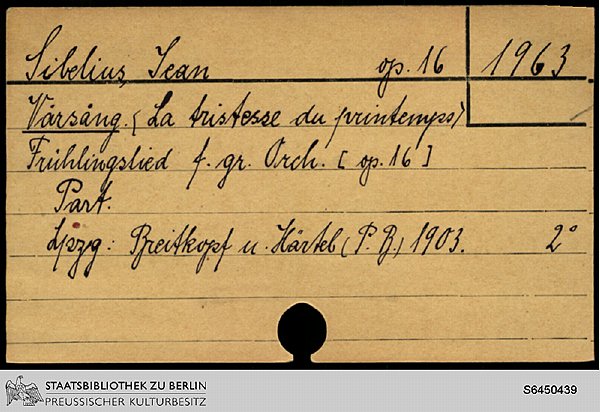 Sibelius, Jean op. 16 1963
Vårsång. (La tristesse du printemps)
Frühlingslied f. gr. Orch. [op. 16]
Part.
Lpzg: Breitkopf u. Härtel (P. B.) 1903. 2°
STAATSBIBLIOTHEK ZU BERLIN
PREUSSISCHER KULTURBESITZ
S6450439